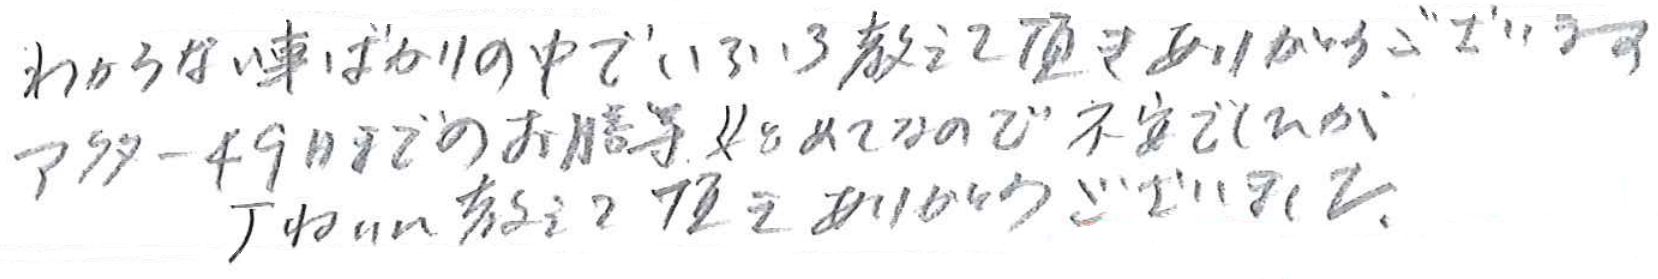 わからない事ばかりの中でいろいろ教えて頂きありがとうございます
アフター49日までのお膳等 始めてなので不安でしたが
丁ねいに教えて頂きありがとうございました。